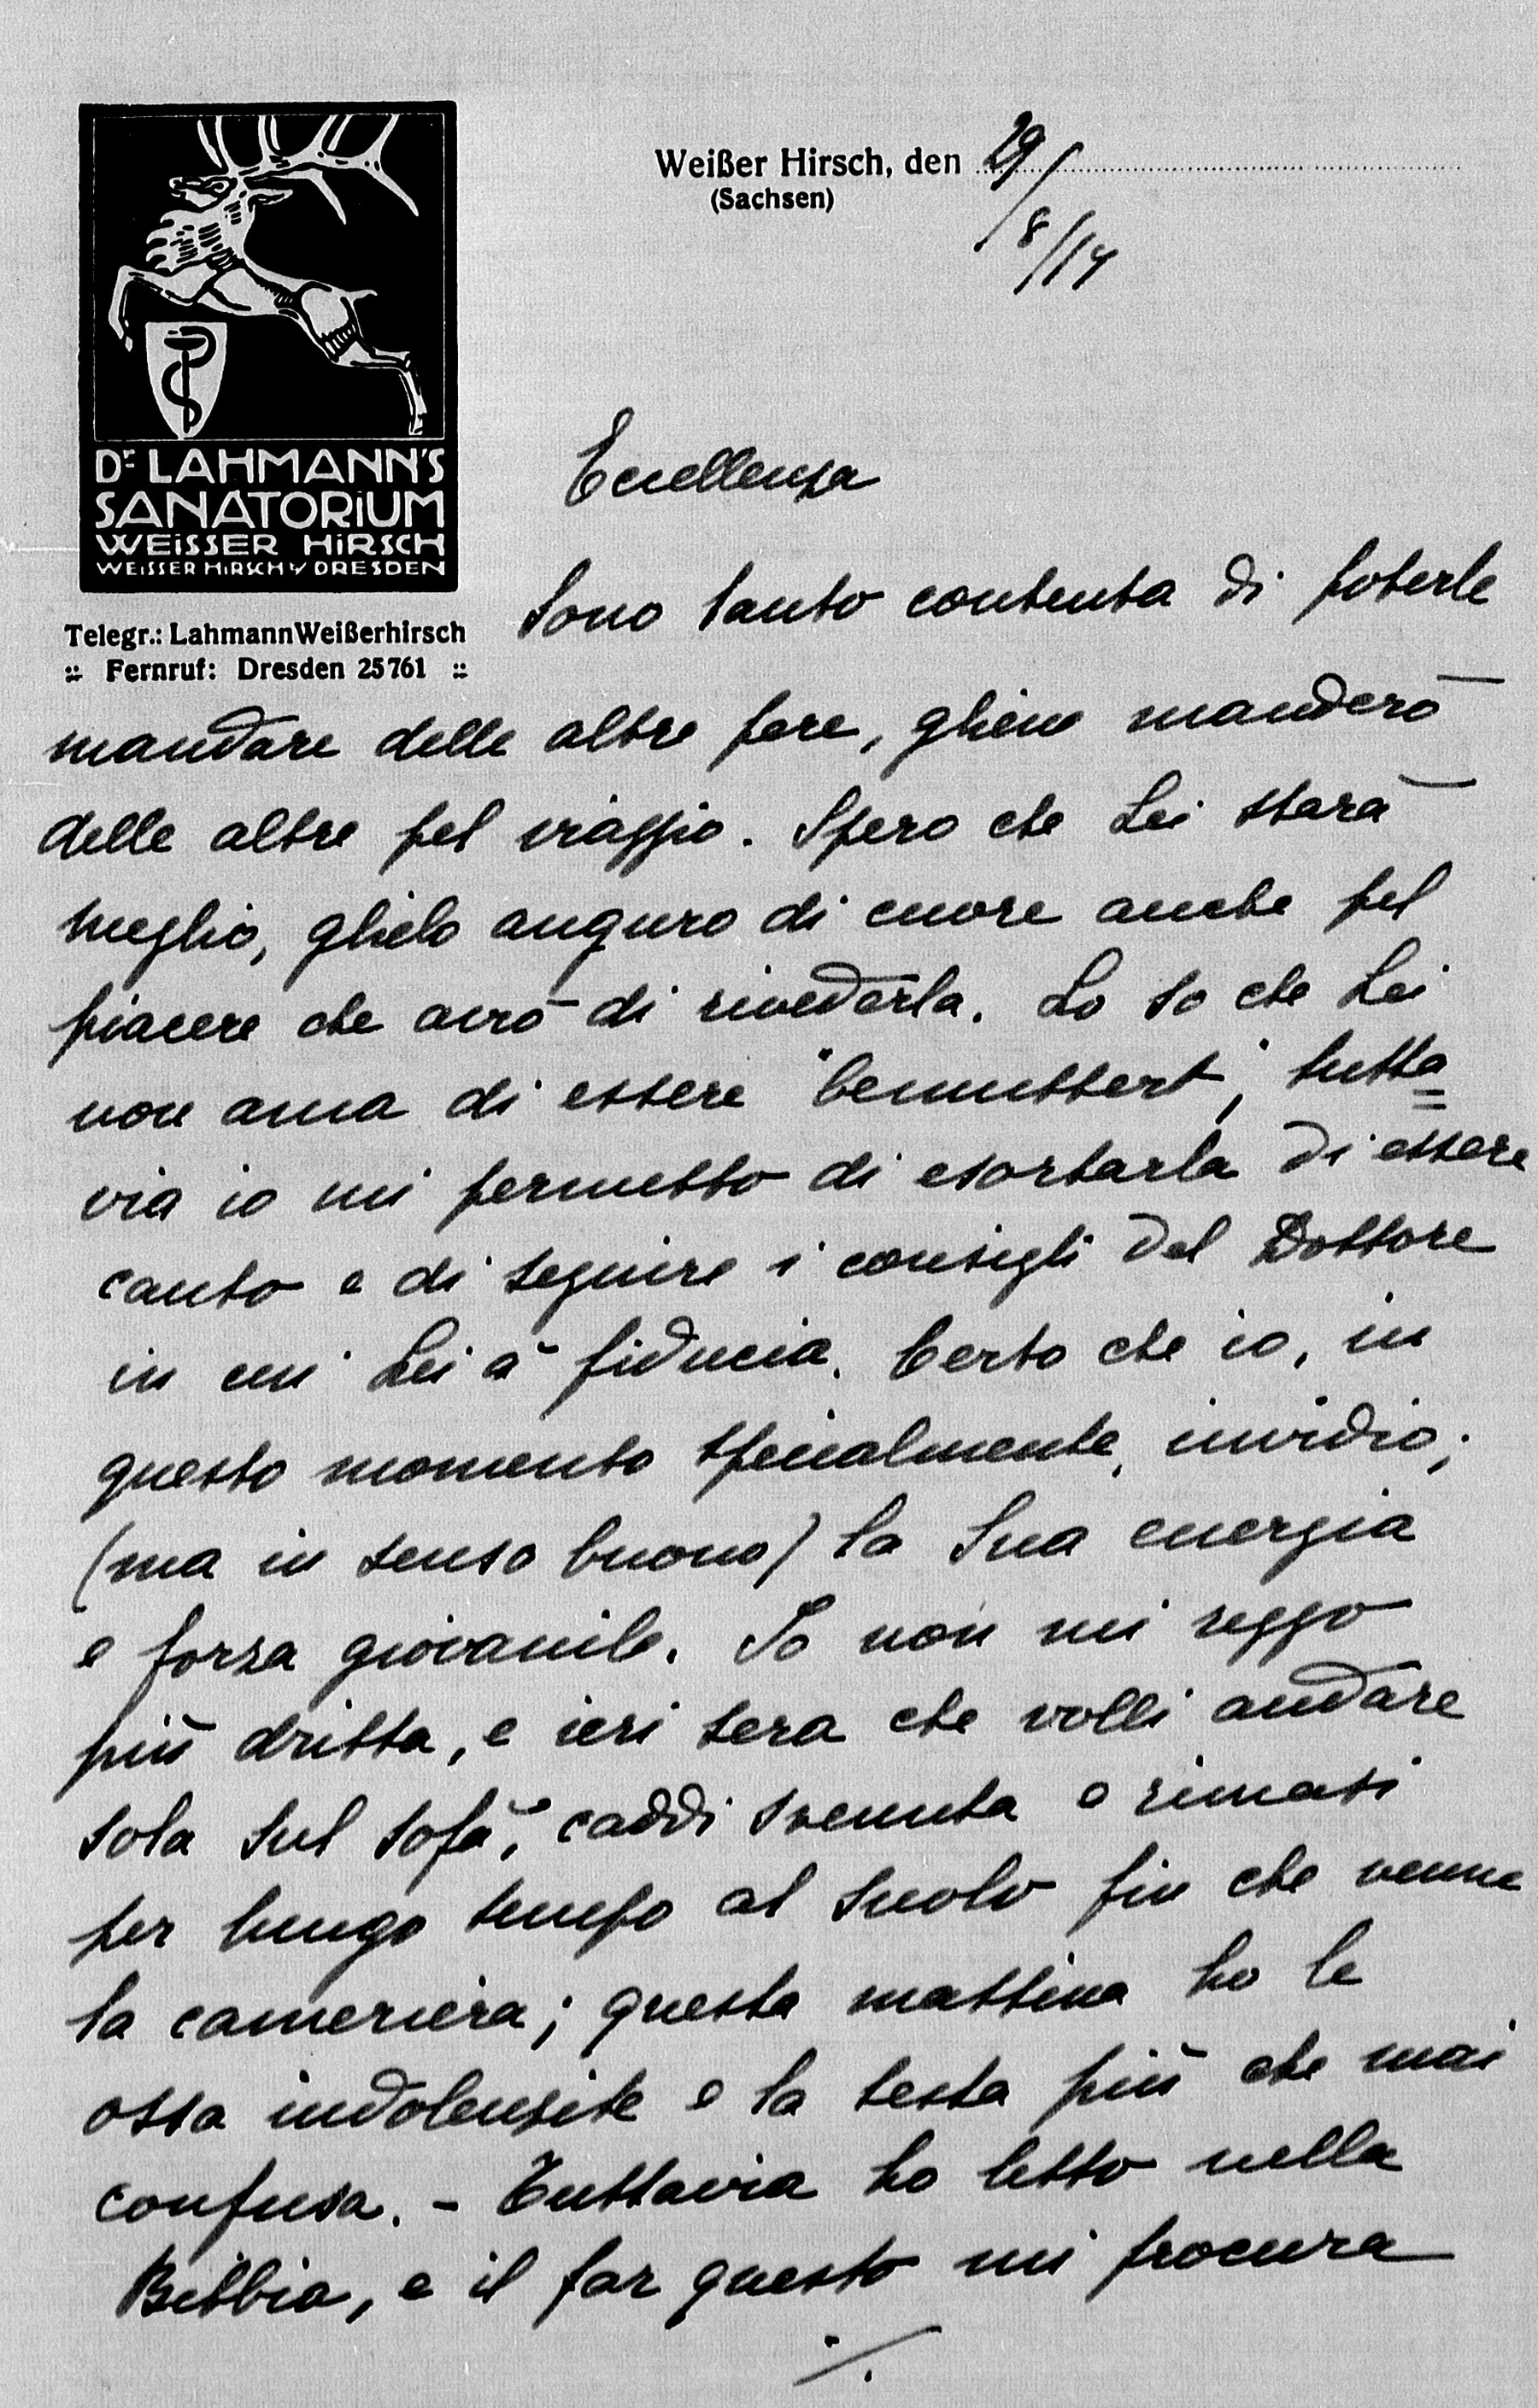 Weißer Hirsch, den 29/8/14
(Sachsen)
Dr. LAHMANN'S
SANATORIUM
WEISSER HIRSCH
WEISSER HIRSCH b/ DRESDEN
Telegr.: LahmannWeißerhirsch
:: Fernruf: Dresden 25761 ::
Eccellenza
Sono tanto contenta di poterle
mandare delle altre pere, gliene manderò
delle altre pel viaggio. Spero che Lei starà
meglio, glielo auguro di cuore anche pel
piacere che avrò di rivederla. Lo so che Lei
non ama di essere "bemuttert", tutta=
via io mi permetto di esortarla di essere
cauto e di seguire i consigli del Dottore
in cui Lei à fiducia. Certo che io, in
questo momento specialmente, invidio,
(ma in senso buono) la Sua energia
e forza giovanile. Io non mi reggo
più dritta, e ieri sera che volli andare
sola sul sofà, caddi svenuta e rimasi
per lungo tempo al suolo fin che venne
la cameriera; questa mattina ho le
ossa indolenzite e la testa più che mai
confusa. - Tuttavia ho letto nella
Bibbia, e il far questo mi procura
./.